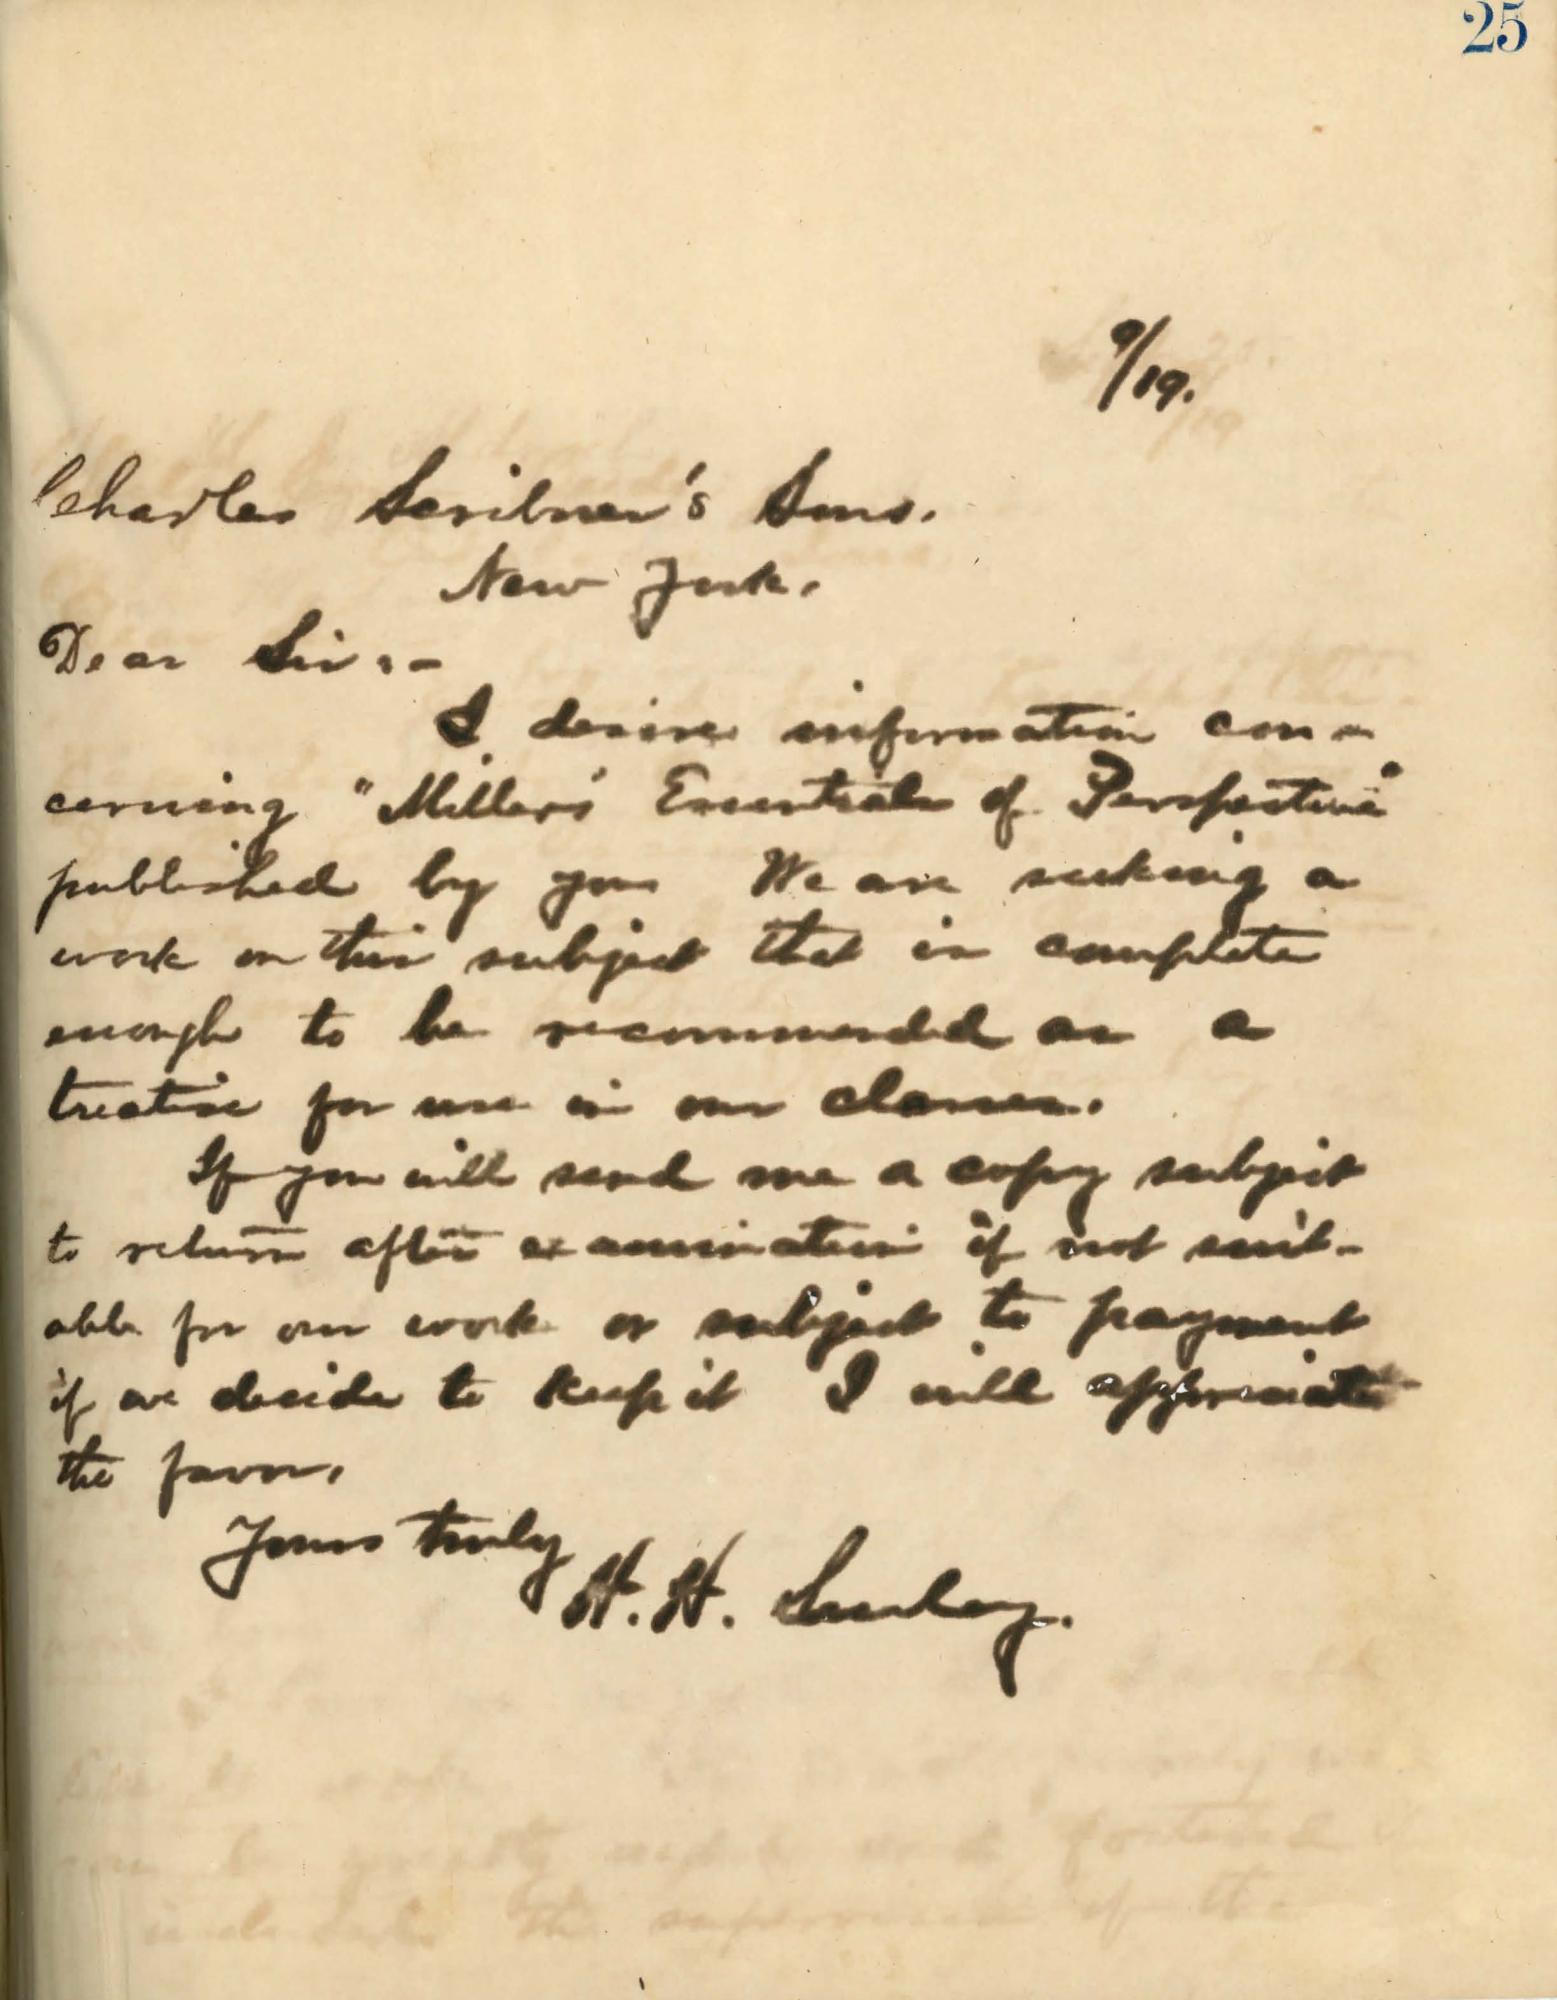 25
9/19.
Charles Scribner's Sons.
New York.
Dear Sir:-
I desire information con-
cerning "Miller's Essentials of Perspective"
published by you We are seeking a
work on this subject that is complete
enough to be recommended as a
treatise for use in our classes.
If you will send me a copy subject
to return after examination if not suit-
able for our work or subject to payment
if we decide to keep it I will appreciate
the favor.
Yours truly
H. H.